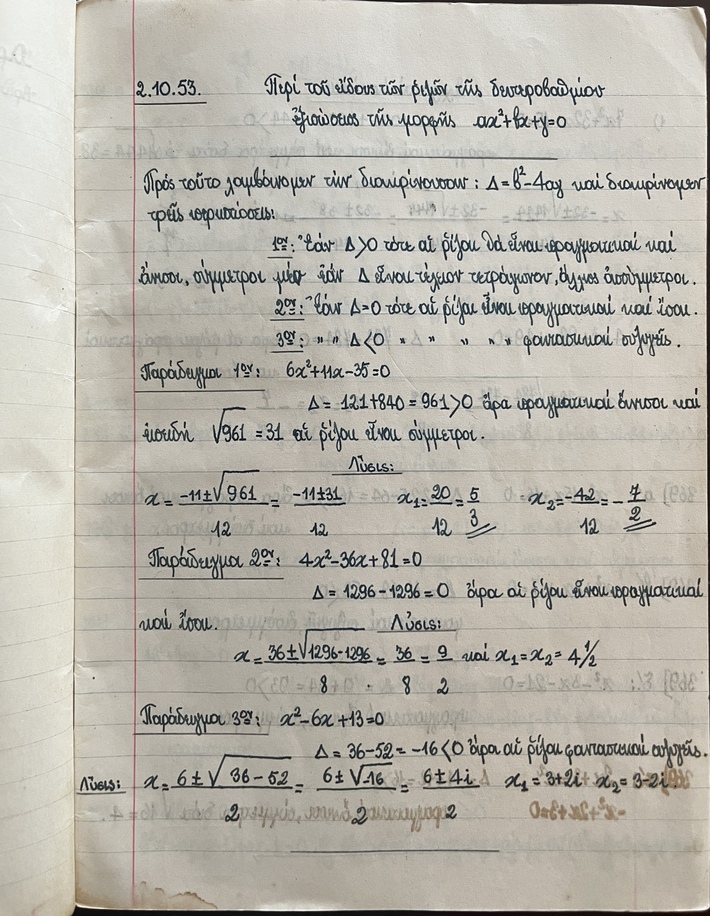 2.10.53. Περί τοῦ εἴδους τῶν ῥιζῶν τῆς δευτεροβαθμίου
ἐξισώσεως τῆς μορφῆς αx²+βx+γ=0
Πρός τοῦτο λαμβάνομεν τήν διακρίνουσαν: Δ=β²-4αγ καί διακρίνομεν
τρεῖς περιπτώσεις:
1ον: Ἐάν Δ>0 τότε αἱ ῥίζαι θά εἶναι πραγματικαί καί
ἄνισοι, σύμμετροι μέν ἐάν Δ εἶναι τέλειον τετράγωνον, ἄλλως ἀσύμμετροι.
2ον: Ἐάν Δ=0 τότε αἱ ῥίζαι εἶναι πραγματικαί καί ἴσαι.
3ον: " " Δ<0 " " " " φανταστικαί συζυγεῖς.
Παράδειγμα 1ον: 6x²+11x-35=0
Δ = 121+840 = 961>0 ἄρα πραγματικαί ἄνισοι καί
ἐπειδή √961 = 31 αἱ ῥίζαι εἶναι σύμμετροι.
Λύσις:
x = (-11±√961)/12 = (-11±31)/12 x₁ = 20/12 = 5/3 x₂ = -42/12 = -7/2
Παράδειγμα 2ον: 4x²-36x+81=0
Δ = 1296-1296=0 ἄρα αἱ ῥίζαι εἶναι πραγματικαί
καί ἴσαι. Λύσις:
x = (36±√1296-1296)/8 = 36/8 = 9/2 καί x₁=x₂= 4 1/2
Παράδειγμα 3ον: x²-6x+13=0
Δ = 36-52 = -16<0 ἄρα αἱ ῥίζαι φανταστικαί συζυγεῖς.
Λύσις: x = (6±√36-52)/2 = (6±√-16)/2 = (6±4i)/2 x₁=3+2i x₂=3-2i